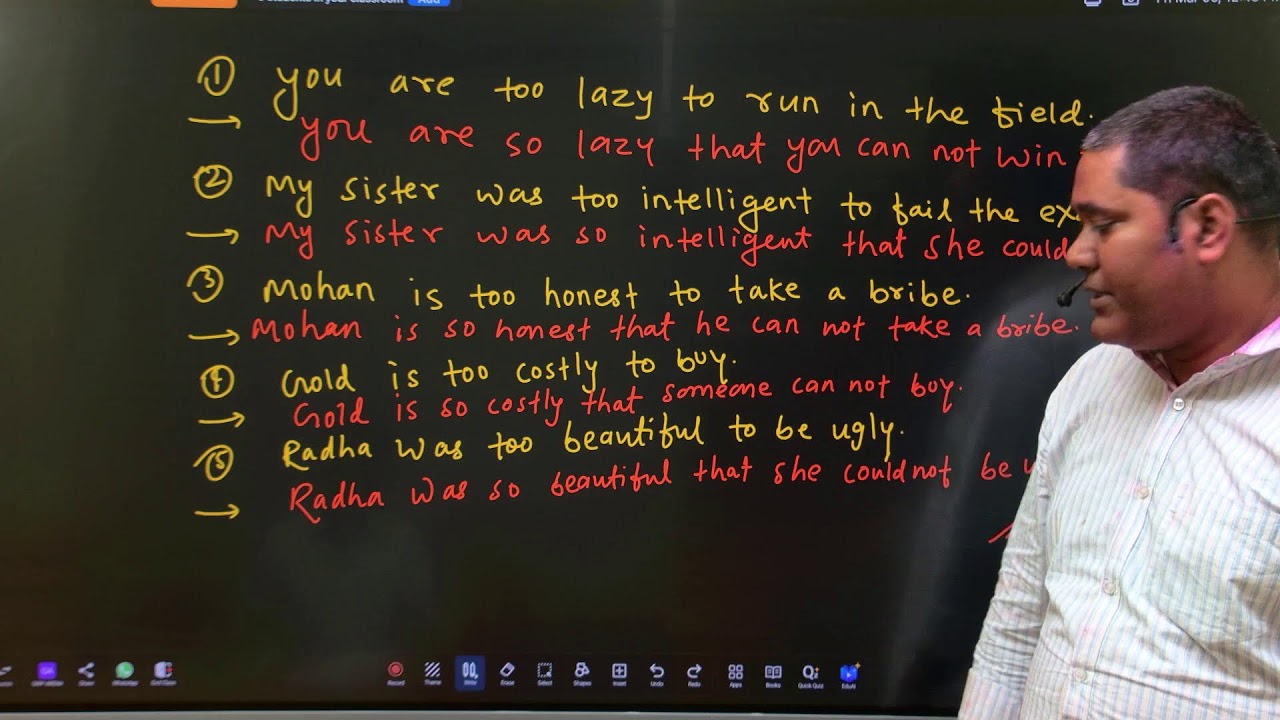 students in your classroom Add
① you are too lazy to run in the field.
→ you are so lazy that you can not win
② My sister was too intelligent to fail the
→ My sister was so intelligent that she could
③ Mohan is too honest to take a bribe.
→ Mohan is so honest that he can not take a bribe.
④ Gold is too costly to buy.
→ Gold is so costly that someone can not buy.
⑤ Radha was too beautiful to be ugly.
→ Radha was so beautiful that she could not be
Share WhatsApp Record Theme Write Erase Select Shapes Insert Undo Redo Apps Books Quick Quiz EduAI